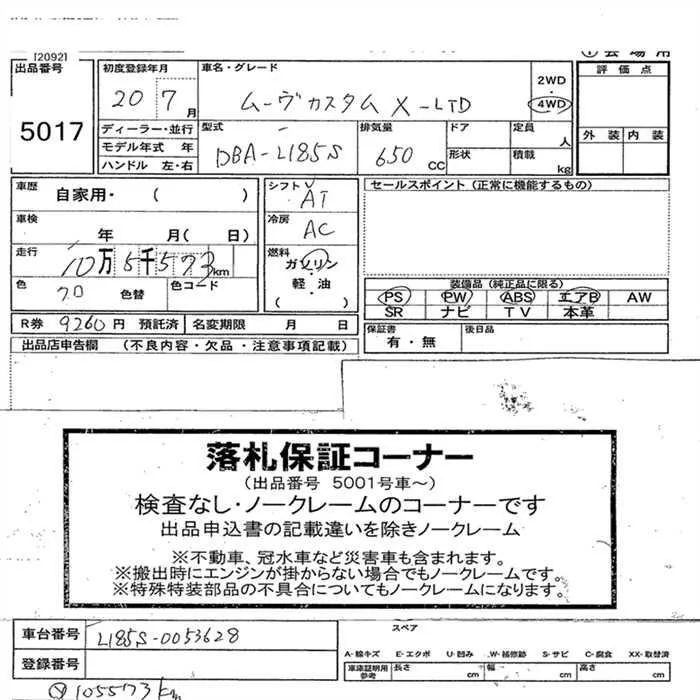 [2092]
出品番号
5017
初度登録年月
20 7月
車名・グレード
ムーヴカスタム X-LTD
2WD
4WD
評価点
外装 内装
ディーラー・並行
モデル年式 年
ハンドル 左・右
型式
DBA-L185S
排気量
650 CC
ドア
形状
定員 人
積載 kg
車歴
自家用・ ( )
車検
年 月( 日)
走行
10万5千573km
色
色替
色コード
シフト
AT
冷房
AC
燃料
ガソリン・
軽・油
( )
セールスポイント(正常に機能するもの)
装備品(純正品に限る)
PS PW ABS エアB AW
SR ナビ TV 本革
保証書
有・無
後日品
R券 9260円 預託済
名変期限 月 日
出品店申告欄 (不良内容・欠品・注意事項記載)
落札保証コーナー
(出品番号 5001号車~)
検査なし・ノークレームのコーナーです
出品申込書の記載違いを除きノークレーム
※不動車、冠水車など災害車も含まれます。
※搬出時にエンジンが掛からない場合でもノークレームです。
※特殊特装部品の不具合についてもノークレームになります。
車台番号
L185S-0053628
登録番号
スペア
A-線キズ E-エクボ U-凹み W-補修跡 S-サビ C-腐食 XX-取替済
車庫証明用
参考
長さ cm
幅 cm
高さ cm
105573km